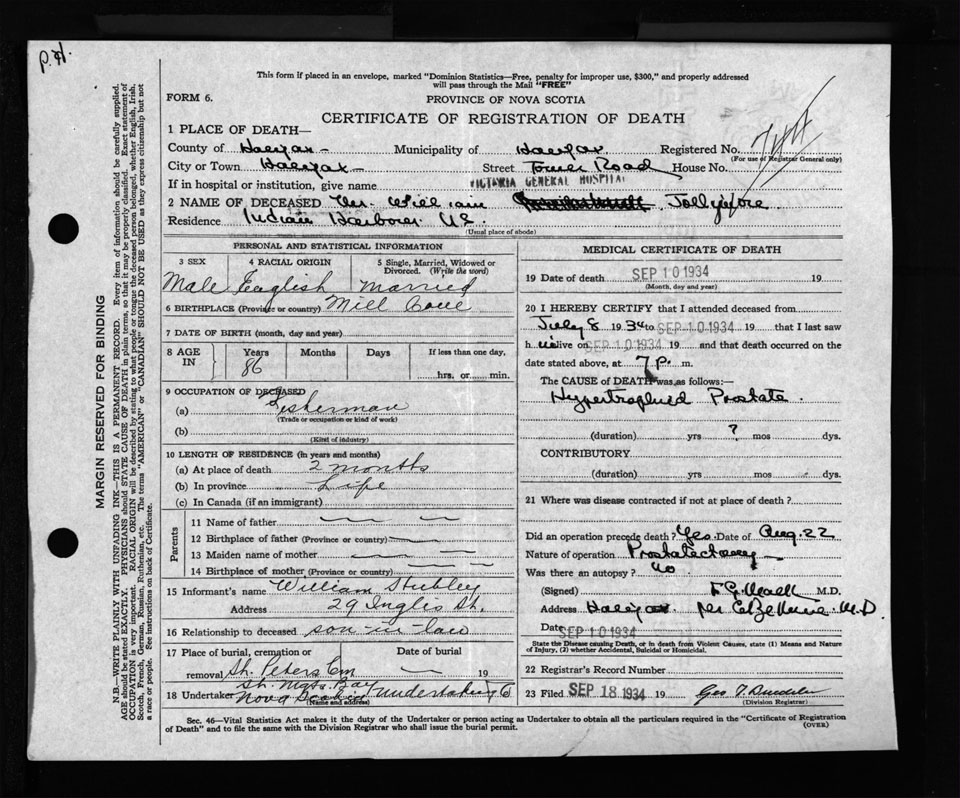 P.H.
This form if placed in an envelope, marked "Dominion Statistics—Free, penalty for improper use, $300," and properly addressed
will pass through the Mail "FREE"
FORM 6.
PROVINCE OF NOVA SCOTIA
CERTIFICATE OF REGISTRATION OF DEATH
1 PLACE OF DEATH—
County of Halifax Municipality of Halifax Registered No.
(For use of Registrar General only)
City or Town Halifax Street Tower Road House No.
If in hospital or institution, give name VICTORIA GENERAL HOSPITAL
2 NAME OF DECEASED Mr. William Jollymore
Residence Indian Harbour
(Usual place of abode)
PERSONAL AND STATISTICAL INFORMATION
3 SEX 4 RACIAL ORIGIN 5 Single, Married, Widowed or
Divorced. (Write the word)
Male English Married
6 BIRTHPLACE (Province or country) Mill Cove
7 DATE OF BIRTH (month, day and year)
8 AGE IN Years Months Days If less than one day,
86
hrs. or min.
9 OCCUPATION OF DECEASED
(a) Fisherman
(Trade or occupation or kind of work)
(b)
(Kind of industry)
10 LENGTH OF RESIDENCE (in years and months)
(a) At place of death 2 months
(b) In province Life
(c) In Canada (if an immigrant)
Parents
11 Name of father
12 Birthplace of father (Province or country)
13 Maiden name of mother
14 Birthplace of mother (Province or country)
15 Informant's name William Stubley
Address 29 Inglis St.
16 Relationship to deceased son-in-law
17 Place of burial, cremation or Date of burial
removal St. Peters Cem 19
St. Mgts. Bay
18 Undertaker Nova Scotia Undertaking Co
(Name and address)
MEDICAL CERTIFICATE OF DEATH
19 Date of death SEP 10 1934 19
(Month, day and year)
20 I HEREBY CERTIFY that I attended deceased from
July 8 1934 to SEP 10 1934 19 that I last saw
h alive on SEP 10 1934 19 and that death occurred on the
date stated above, at 7 p. m.
The CAUSE of DEATH was as follows:—
Hypertrophied Prostate.
(duration) yrs ? mos dys.
CONTRIBUTORY
(duration) yrs mos dys.
21 Where was disease contracted if not at place of death?
Did an operation precede death? Yes Date of Aug. 22
Nature of operation Prostatectomy
Was there an autopsy? No
(Signed) F.G. Mack M.D.
Address Halifax per M.D
Date SEP 10 1934
State the Disease causing Death, or in death from Violent Causes, state (1) Means and Nature
of Injury, (2) whether Accidental, Suicidal or Homicidal.
22 Registrar's Record Number
23 Filed SEP 18 1934 19
(Division Registrar)
Sec. 46—Vital Statistics Act makes it the duty of the Undertaker or person acting as Undertaker to obtain all the particulars required in the "Certificate of Registration
of Death" and to file the same with the Division Registrar who shall issue the burial permit.
(OVER)
MARGIN RESERVED FOR BINDING
N.B.—WRITE PLAINLY WITH UNFADING INK—THIS IS A PERMANENT RECORD. Every item of information should be carefully supplied.
AGE should be stated EXACTLY. PHYSICIANS should STATE CAUSE OF DEATH in plain terms, so that it may be properly classified. Exact statement of
OCCUPATION is very important. RACIAL ORIGIN will be described by stating to what people or tongue the deceased person belonged, whether English, Irish,
Scotch, French, German, Russian, Ruthenian, etc. The terms "AMERICAN" or "CANADIAN" SHOULD NOT BE USED as they express citizenship but not
a race or people. See instructions on back of Certificate.